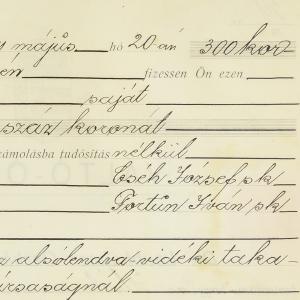 május hó 20-án 300 kor
én fizessen Ön ezen
saját
száz koronát
zámolásba tudósítás nélkül
Cséh József sk
Fortún Iván sk
z alsólendva-vidéki taka-
társaságnál.